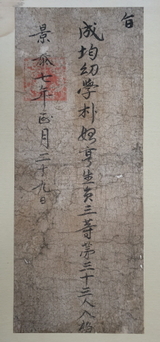 旨
成均幼學朴亨生員三等第三十三人入格
景泰七年正月二十九日